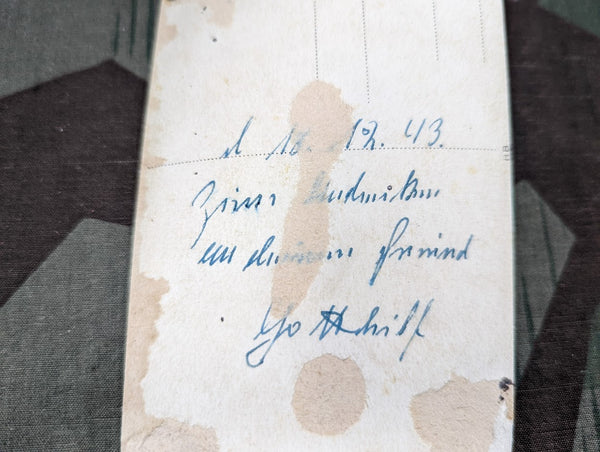 d 18. 12. 43.
Zum Andenken
an deinen Freund
Gotthilf